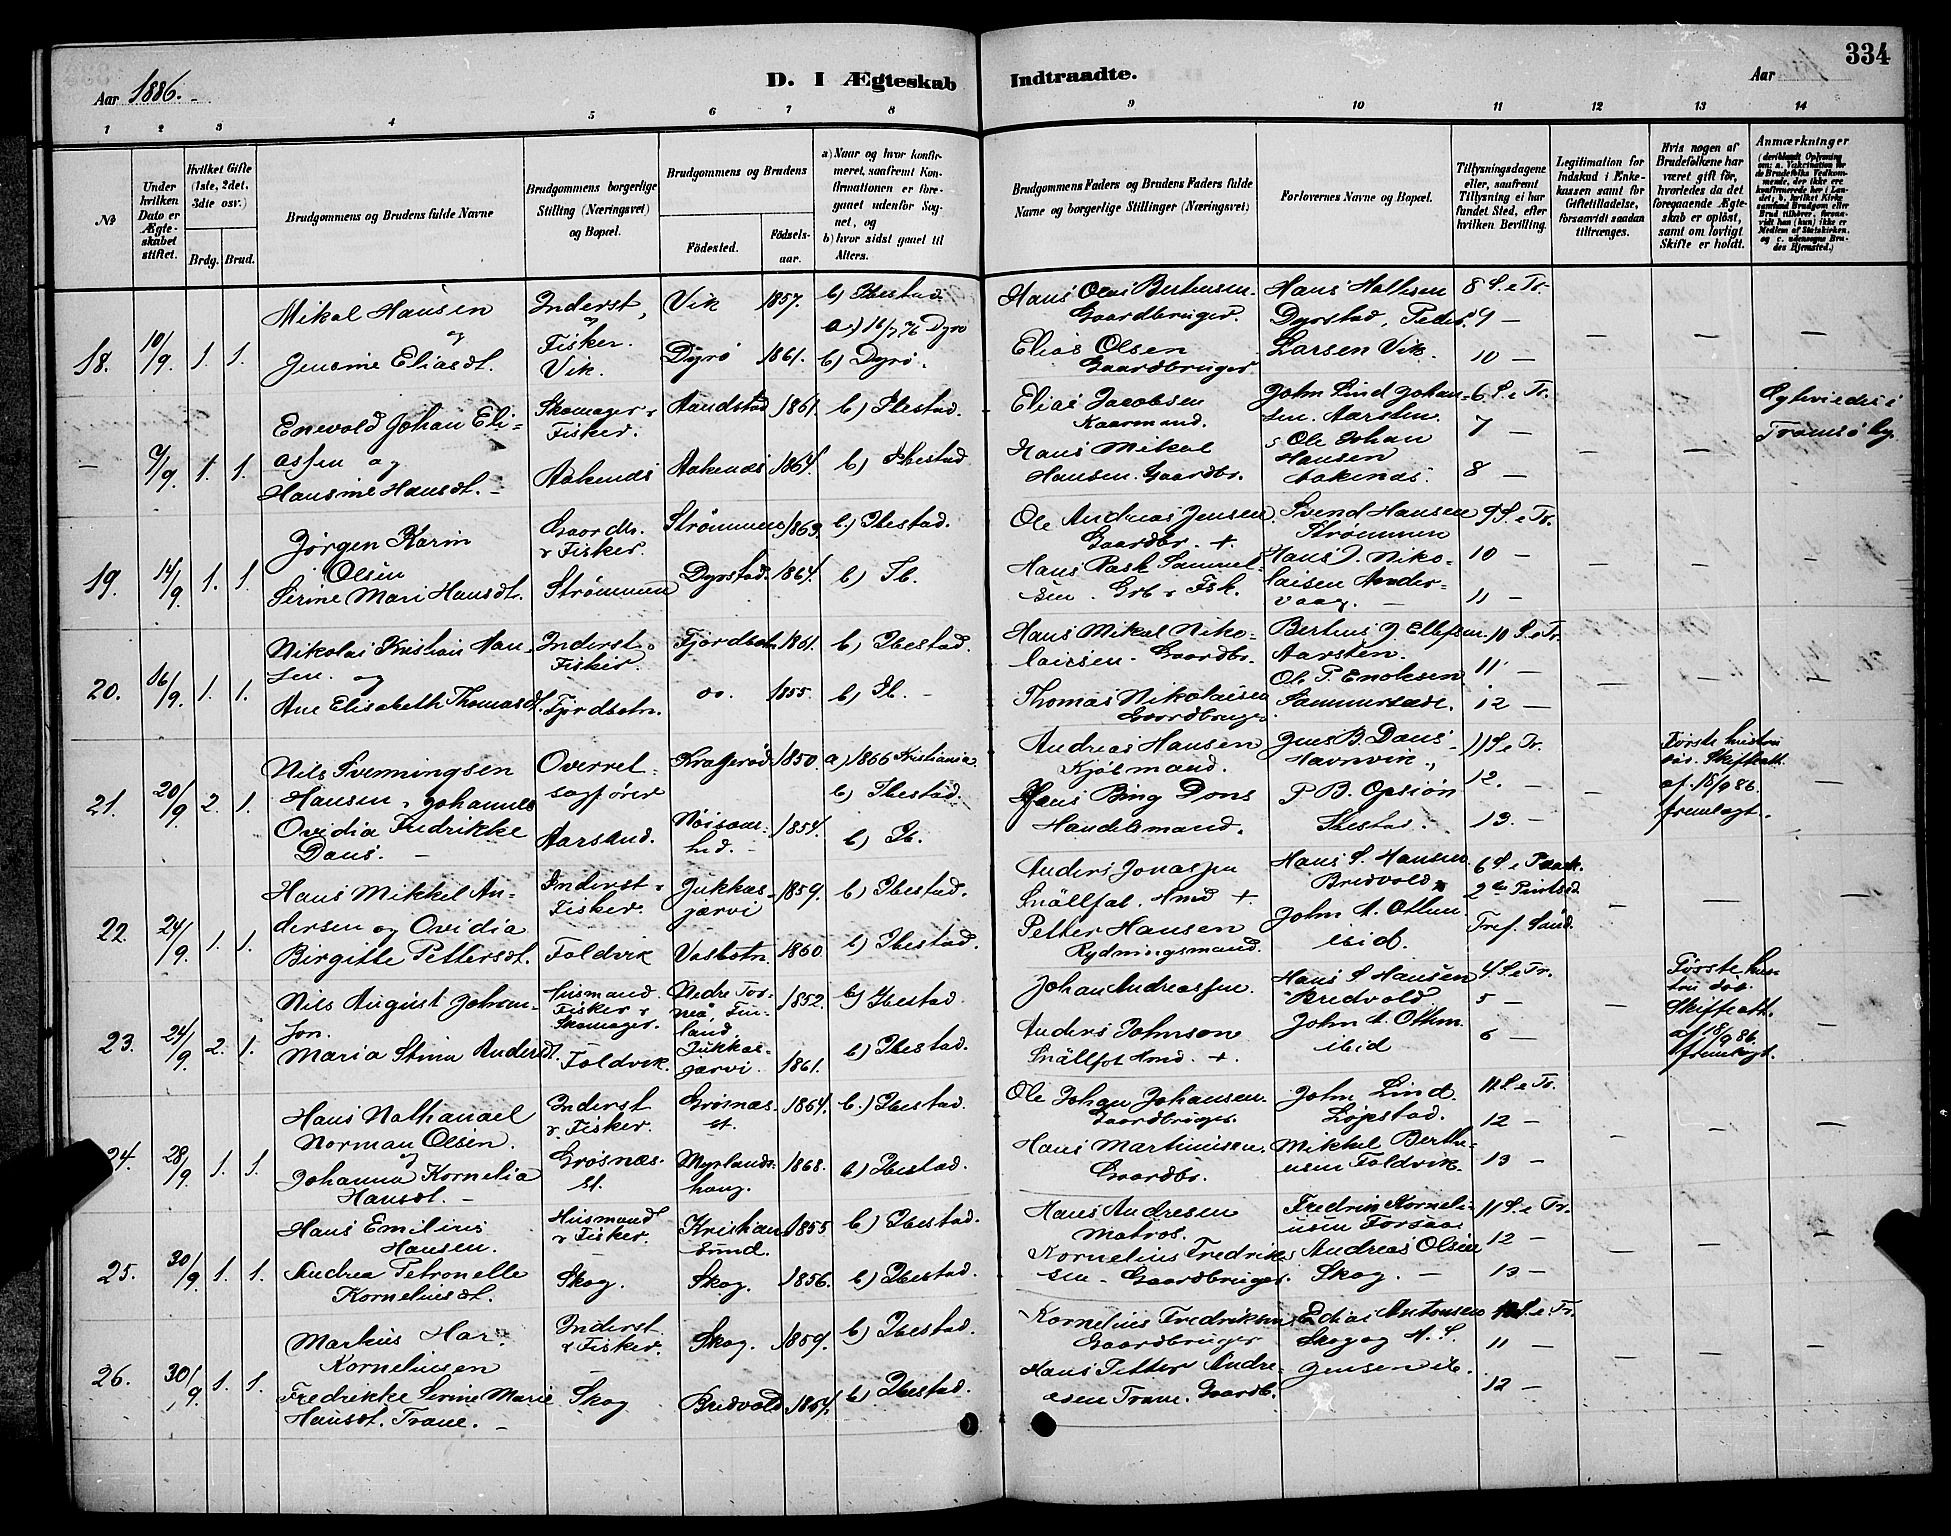 334
Aar 1886. -
D. I Ægteskab Indtraadte.
Aar
1 2 3 4 5 6 7 8 9 10 11 12 13 14
№
Under hvilken Dato er Ægteskabet stiftet.
Hvilket Gifte (1ste, 2det, 3die osv.)
Brdg. Brud.
Brudgommens og Brudens fulde Navne
Brudgommens borgerlige Stilling (Næringsvei) og Bopæl.
Brudgommens og Brudens
Fødested. Fødselsaar.
a) Naar og hvor konfirmeret, saafremt Konfirmationen er foregaaet udenfor Sognet, og
b) hvor sidst gaaet til Alters.
Brudgommens Faders og Brudens Faders fulde Navne og borgerlige Stillinger (Næringsvei)
Forlovernes Navne og Bopæl.
Tillysningsdagene eller, saafremt Tillysning ei har fundet Sted, efter hvilken Bevilling.
Legitimation for Indskud i Enkekassen samt for Giftetilladelse, forsaavidt saadan tiltrænges.
Hvis nogen af Brudefolkene har været gift før, hvorledes da det foregaaende Ægteskab er opløst, samt om lovligt Skifte er holdt.
Anmærkninger
18. 10/9. 1. 1.
Mikal Hansen
og
Jensine Eliasdt.
Inderst,
og
Fisker.
Vik.
Vik 1857. b) Ibestad
a) 16/7 76 Dyrø
Dyrø 1861. b) Dyrø.
Hans Olai Berthensen.
Gaardbruger.
Elias Olsen
Gaardbruger
Hans
Dyrstad, Peder
Larsen Vik.
8 S. e Tr.
9 —
10 —
— 7/9. 1. 1.
Enevold Johan Eli-
assen og
Hansine Hansdt. —
Skomager &
Fisker.
Aakenes
Aandstad 1861. b) Ibestad.
Aakenes 1864. b) Ibestad
Elias Jacobsen
Kaarmand.
Hans Mikal
Hansen. Gaardbr.
John Lind Johan-
sen. Aarsten.
Ole Johan
Hansen
Aakenæs.
6 S. e Tr.
7 —
8 —
Tromsø by
19. 14/9. 1. 1.
Jørgen Karin
Olsen
Serine Mari Hansdt.
Gaardbr.
& Fisker.
Strømmen
Strømmen 1863. b.) Ibestad.
Dyrstad. 1864. b) Ib.
Ole Andreas Jensen
Gaardbr. +
Hans Rask Samuel-
sen. Grb & Fsk.
Svend Hansen
Strømmen
Hans J. Niko-
laisen Ander-
vaag. —
9 S. e Tr.
10 —
11 —
20. 16/9. 1. 1.
Nikolai Kristian Han-
sen. og
Ane Elisabeth Thomasdt.
Inderst &
Fisker.
Fjordbotn.
Fjordbotn 1861. b) Ibestad.
do. 1855. b) Ib. —
Hans Mikal Niko-
laisen. Gaardbr.
Thomas Nikolaisen
Gaardbruger.
Bertius J Ellefsen
Aarsten.
Ole P. Enoksen
Sammersæde.
10 S. e Tr.
11 —
12 —
21. 20/9. 2. 1.
Nils Svenningsen
Hansen, Johannes
Ovidia Fredrikke
Dons. —
Overret-
sagfører
Aarsand.
Kragerød 1850. a) 1866 Kristiania
b) Ibestad
1854. b) Ib.
Andreas Hansen
Kjøbmand.
Hans Bing Dons
Handelsmand.
Jens B. Dons
Havnvik.,
P. B.
Ibestad.
11 S. e Tr.
12. —
13. —
Første hustru
død. Skifteatt.
af. 18/9 86.
fremlagt.
22. 24/9. 1. 1.
Hans Mikkel An-
dersen og Ovidia
Birgitte Pettersdt.
Inderst &
Fisker.
Foldvik
Jukkas-
jærvi 1859. b) Ibestad.
Vasbotn. 1860. b) Ibestad.
Anders Jonassen
Snällfot. Hmd +.
Petter Hansen
Rydningsmand.
Hans S. Hansen
Bredvold &
John A. Othm
ibid.
6 S. e Paask.
2den Pintsd.
Tref. Sønd.
23. 24/9. 2. 1.
Nils August Johan-
son.
Maria Stina Andersdt.
Husmand.
Fisker &
Skomager.
Foldvik.
Nedre Tor-
neå, Fin-
land 1852. b) Ibestad.
Jukkas-
jærvi. 1861. b) Ibestad.
Johan Andreassen.
Anders Johnson
Snällfot Hmd. +.
Hans S Hansen
Bredvold.
John A. Othm.
ibid
4 S. e Tr.
5 —
6 —
Første hus-
tru død.
Skifteatt.
af 18/9 86.
fremlagt.
24. 28/9. 1. 1.
Hans Nathanael
Norman Olsen.
og
Johanna Kornelia
Hansdt. —
Inderst
& Fisker.
Grosnæs-
et.
Grosnæs-
et. 1864. b.) Ibestad.
Myrlands-
haug. 1868. b) Ibestad.
Ole Johan Johansen.
Gaardbruger.
Hans Martinusen.
Gaardbr.
John Lind
Løpestad.
Mikkel Berthe-
usen Foldvik.
11 S. e Tr.
12 —
13 —
25. 30/9. 1. 1.
Hans Emilius
Hansen.
Andrea Petronelle
Korneliusdt.
Husmand
& Fisker.
Skog.
Kristian
Sund. 1855 b) Ibestad.
Skog. 1856. b) Ibestad.
Hans Andresen
Matros.
Kornelius Fredrik-
sen. Gaardbruger.
Fredrin Korneli-
usen Forsaa
Andreas Olsen
Skog. —
11 S. e Tr.
12 —
13 —
26. 30/9. 1. 1.
Markus Har.
Korneliusen
Fredrikke Serine Marie
Hansdt. Trane. —
Inderst
& Fisker.
Skog
Skog. 1859. b) Ibestad.
Bredvold 1864. b) Ibestad.
Kornelius Fredriksen
Gaardbruger
Hans Petter Andre-
asen Trane. Gaardb.
Edias Antonsen
Skog og H. S.
Jensen ib.
10 S. e Tr.
11 —
12 —